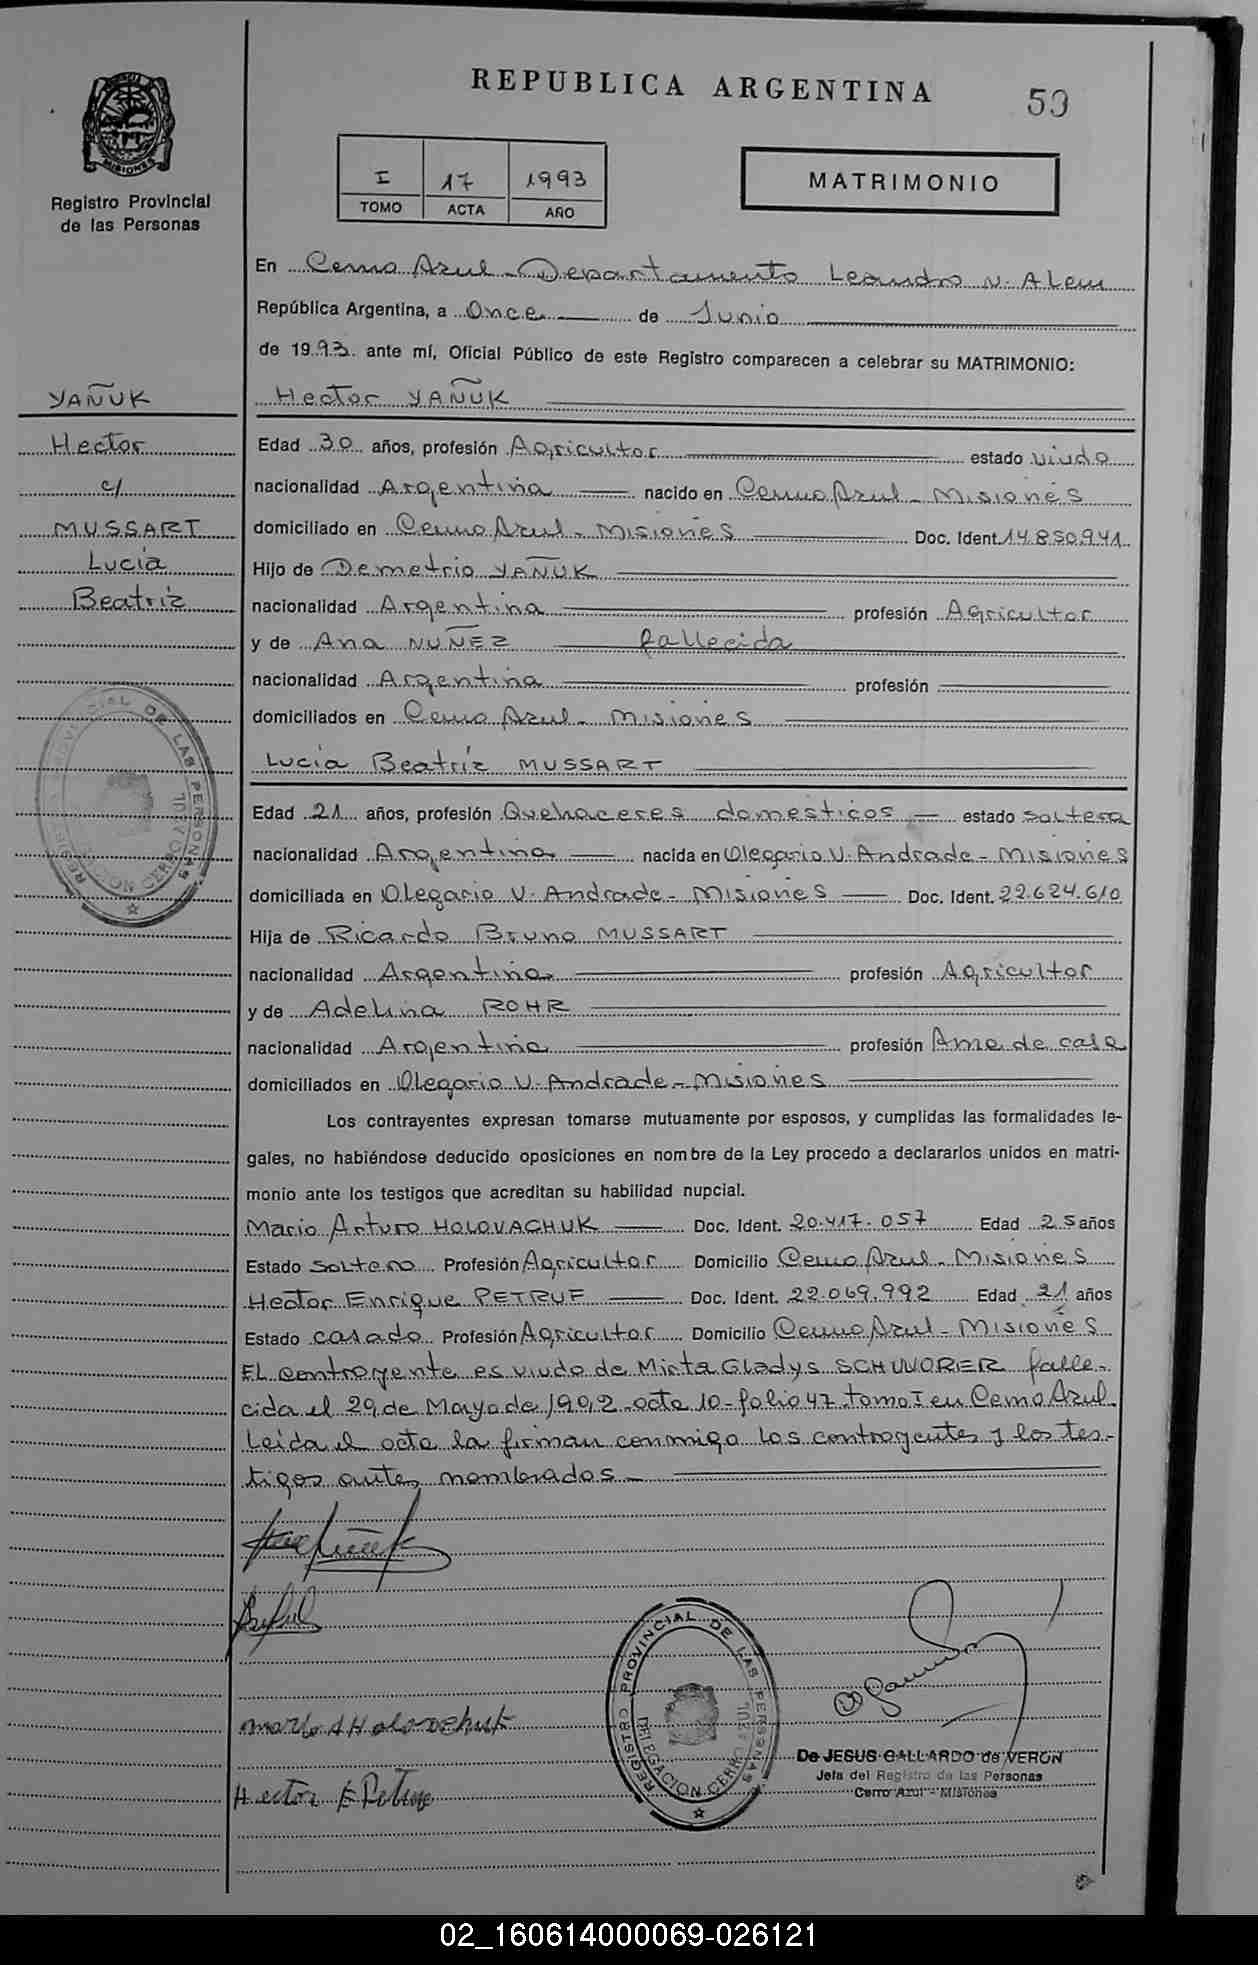 REPUBLICA ARGENTINA
53
MISIONES
Registro Provincial
de las Personas
I 17 1993
TOMO ACTA AÑO
MATRIMONIO
En Cerro Azul - Departamento Leandro N. Alem
República Argentina, a Once de Junio
de 1993. ante mí, Oficial Público de este Registro comparecen a celebrar su MATRIMONIO:
YAÑUK
Hector
c/
MUSSART
Lucia
Beatriz
Hector YAÑUK
Edad 30 años, profesión Agricultor estado viudo
nacionalidad Argentina nacido en Cerro Azul - Misiones
domiciliado en Cerro Azul - Misiones Doc. Ident. 14.850.941
Hijo de Demetrio YAÑUK
nacionalidad Argentina profesión Agricultor
y de Ana NUÑEZ fallecida
nacionalidad Argentina profesión
domiciliados en Cerro Azul - Misiones
Lucia Beatriz MUSSART
Edad 21 años, profesión Quehaceres domesticos estado soltera
nacionalidad Argentina nacida en Olegario V. Andrade - Misiones
domiciliada en Olegario V. Andrade - Misiones Doc. Ident. 22.624.610
Hija de Ricardo Bruno MUSSART
nacionalidad Argentina profesión Agricultor
y de Adelina ROHR
nacionalidad Argentina profesión Ama de casa
domiciliados en Olegario V. Andrade - Misiones
Los contrayentes expresan tomarse mutuamente por esposos, y cumplidas las formalidades le-
gales, no habiéndose deducido oposiciones en nombre de la Ley procedo a declararlos unidos en matri-
monio ante los testigos que acreditan su habilidad nupcial.
Mario Arturo HOLOVACHUK Doc. Ident. 20.417.057 Edad 25 años
Estado soltero Profesión Agricultor Domicilio Cerro Azul - Misiones
Hector Enrique PETRUF Doc. Ident. 22.069.992 Edad 21 años
Estado casado Profesión Agricultor Domicilio Cerro Azul - Misiones
EL contrayente es viudo de Mirta Gladys SCHUVORER falle-
cida el 29 de Mayo de 1992 - acta 10 - folio 47 tomo I en Cerro Azul.
Leida el acta la firman conmigo los contrayentes y los tes-
tigos antes nombrados -
Mario A Holovachuk
Hector E Petruf
REGISTRO PROVINCIAL DE LAS PERSONAS
DELEGACION CERRO AZUL
De JESUS GALLARDO de VERON
Jefa del Registro de las Personas
Cerro Azul - Misiones
02_160614000069-026121